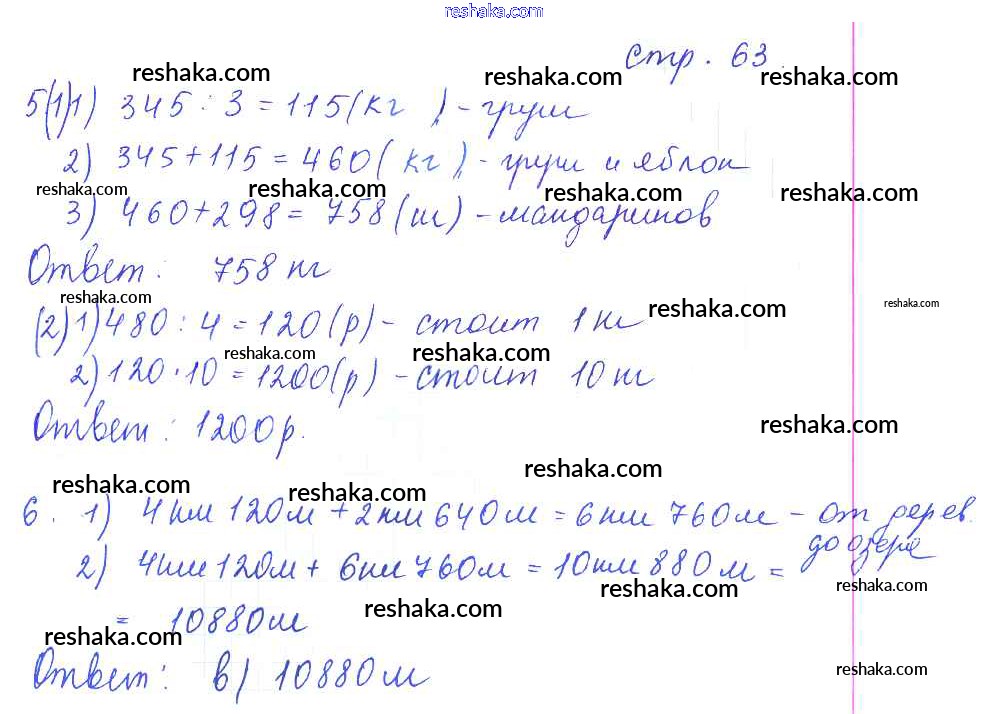 reshaka.com
стр. 63
reshaka.com reshaka.com reshaka.com
5(1)1) 345 : 3 = 115 (кг) - груш
2) 345 + 115 = 460 (кг) - груш и яблок
reshaka.com reshaka.com reshaka.com reshaka.com
3) 460 + 298 = 758 (кг) - мандаринов
Ответ: 758 кг
reshaka.com reshaka.com reshaka.com
(2) 1) 480 : 4 = 120 (р) - стоит 1 кг
reshaka.com reshaka.com
2) 120 · 10 = 1200 (р) - стоит 10 кг
Ответ: 1200 р.
reshaka.com
reshaka.com
reshaka.com reshaka.com
6. 1) 4 км 120 м + 2 км 640 м = 6 км 760 м - от дерев.
до озера
2) 4 км 120 м + 6 км 760 м = 10 км 880 м =
reshaka.com
= 10880 м
reshaka.com reshaka.com
Ответ: в) 10880 м
reshaka.com